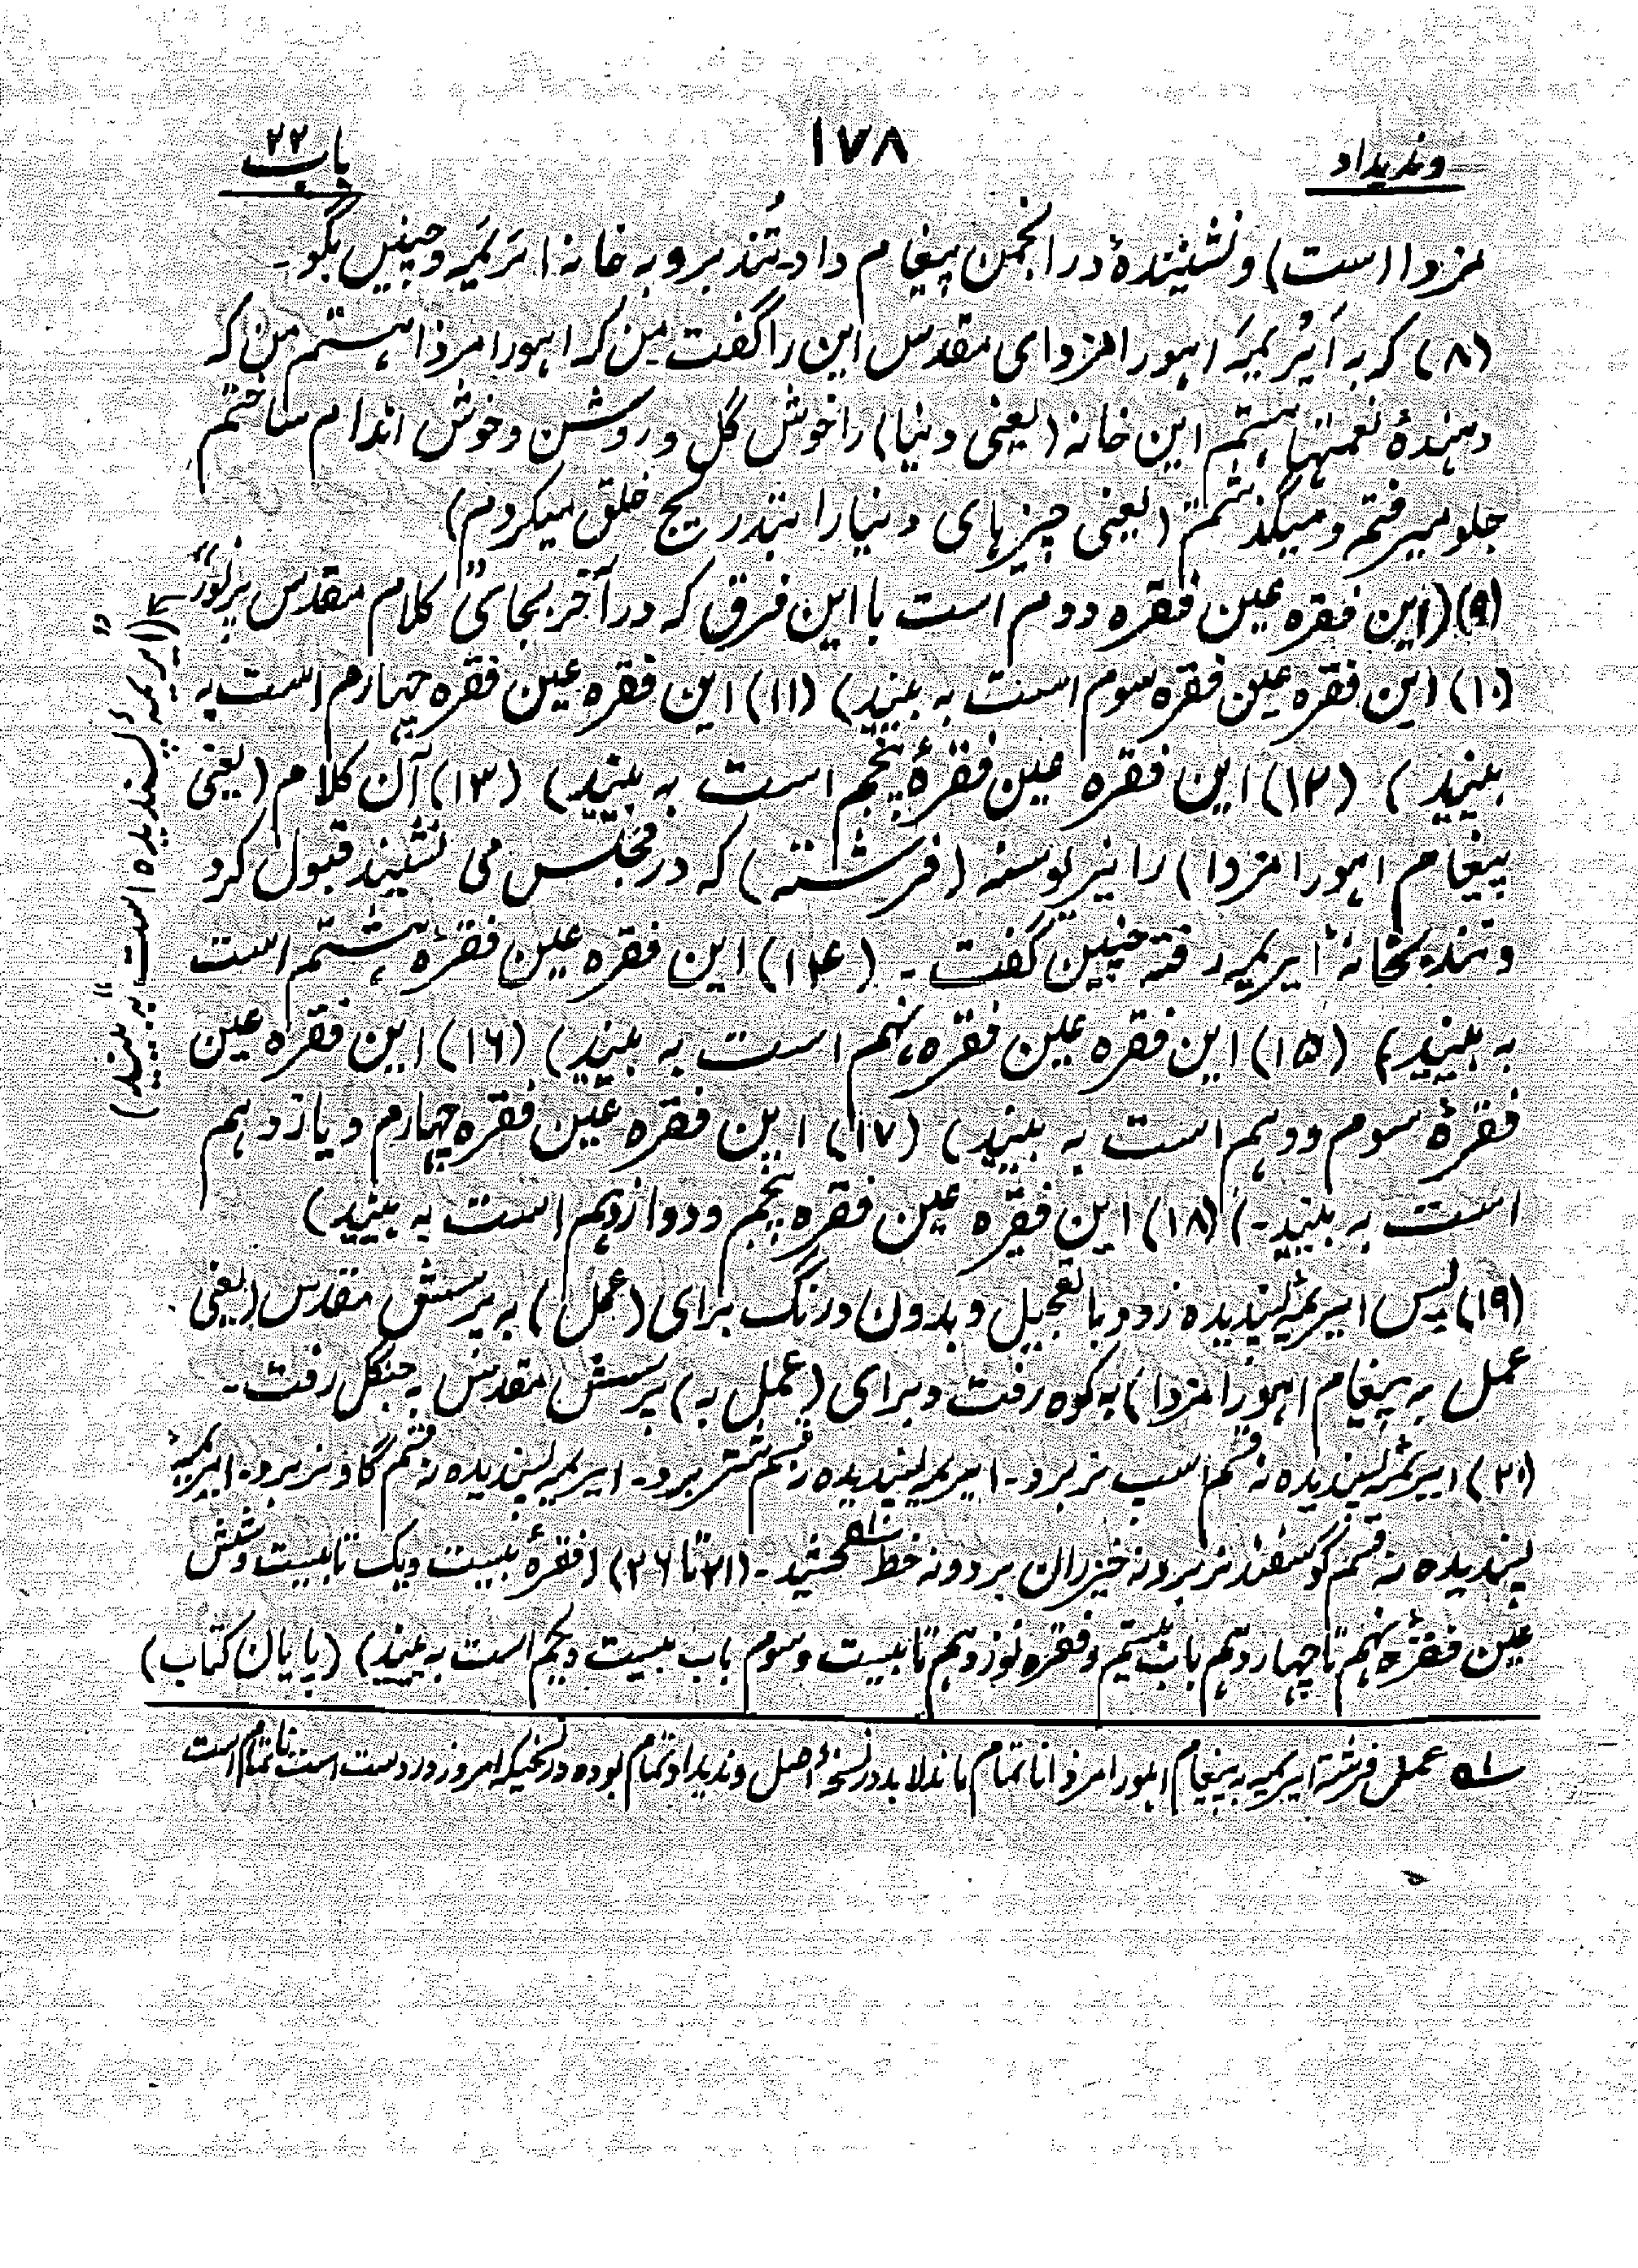 وندیداد
۱۷۸
باب ۲۲
مزدا است) و نشینندهٔ در انجمن پیغام داد۔ تُند برو به خانه ائریمیه و چنین بگو۔
(۸) که به ائریمیه اهورا مزدای مقدس این را گفت۔ من که اهورا مزدا هستم من که
دهندهٔ نعمتها هستم این خانه (یعنی دنیا) را خوش گل و روشن و خوش اندام ساختم
جلو میرفتم و میگذشتم (یعنی چیزهای دنیا را بتدریج خلق میکردم)
(۹) (این فقره عین فقره دوم است با این فرق که در آخر بجای "کلام مقدس پرنور"
"ایریمیه پسندیده است" به بینید)
(۱۰) (این فقره عین فقره سوم است به بینید) (۱۱) (این فقره عین فقره چهارم است به
بینید) (۱۲) (این فقره عین فقرهٔ پنجم است به بینید) (۱۳) آن کلام (یعنی
پیغام اهورا مزدا) را نیریوسنه (فرشته) که در مجلس می نشیند قبول کرد
و تند بخانهٔ ایریمیه رفته چنین گفت۔ (۱۴) (این فقره عین فقرهٔ هشتم است
به بینید) (۱۵) (این فقره عین فقره نهم است به بینید) (۱۶) (این فقره عین
فقرهٔ سوم و دهم است به بینید) (۱۷) (این فقره عین فقره چهارم و یازدهم
است به بینید۔) (۱۸) (این فقره عین فقره پنجم و دوازدهم است به بینید)
(۱۹) پس ایریمیه پسندیده زود با تعجیل و بدون درنگ برای (عمل) به پرسش مقدس (یعنی
عمل به پیغام اهورا مزدا) به کوه رفت و برای (عمل به) پرسش مقدس به جنگل رفت۔
(۲۰) ایریمیه پسندیده نه قسم اسپ نر برد۔ ایریمیه پسندیده نه قسم شتر برد۔ ایریمیه پسندیده نه قسم گاو نر برد۔ ایریمیه
پسندیده نه قسم گوسفند نر برد و نه خیزران برد و نه خط کشید۔ (۲۱ تا ۲۶) (فقرهٔ بیست و یک تا بیست و شش
عین فقرهٔ نهم تا چهاردهم باب بیستم و فقره نوزدهم تا بیست و سوم باب بیست و یکم است به بینید) (پایان کتاب)
۱ عمل فرشته ایریمیه به پیغام اهورا مزدا ناتمام ماند لابد در نسخهٔ اصل وندیداد تمام بوده در نسخیکه امروز در دست است ناتمام است